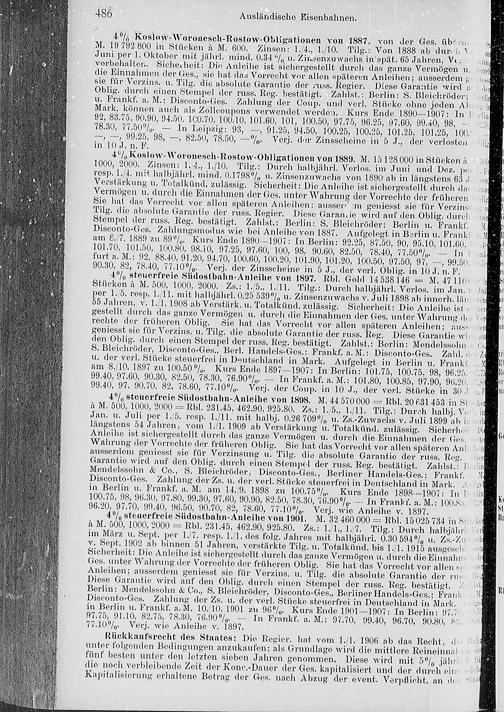 486
Ausländische Eisenbahnen.
4% Koslow-Woronesch-Rostow-Obligationen von 1887, von der Ges. über
M. 19 792 800 in Stücken à M. 600. Zinsen: 1./4., 1./10. Tilg.: Von 1888 ab durch V
Juni per 1. Oktober mit jährl. mind. 0.34% u. Zinsenzuwachs in spät. 65 Jahren, Ve
vorbehalten. Sicherheit: Die Anleihe ist sichergestellt durch das ganze Vermögen u.
die Einnahmen der Ges., sie hat das Vorrecht vor allen späteren Anleihen; ausserdem
sie für Verzins. u. Tilg. die absolute Garantie der russ. Regier. Diese Garantie wird a
Oblig. durch einen Stempel der russ. Reg. bestätigt. Zahlst.: Berlin: S. Bleichröder;
u. Frankf. a. M.: Disconto-Ges. Zahlung der Coup. und verl. Stücke ohne jeden Al
Mark, können auch als Zollcoupons verwendet werden. Kurs Ende 1890—1907: In
92, 83.75, 90.90, 94.50, 100.70, 100.10, 101.60, 101, 100.50, 97.75, 96.25, 97.60, 99.40, 98,
78.30, 77.50%. — In Leipzig: 93, —, 91.25, 94.50, 100.25, 100.25, 101.25, 100,
—, —, 99.25, 98, —, 82.50, 78.50, —%. Verj. der Zinsscheine in 5 J., der verlosten
in 10 J. n. F.
4% Koslow-Woronesch-Rostow-Obligationen von 1889. M. 15 128 000 in Stücken à
1000, 2000. Zinsen: 1./4., 1./10. Tilg.: Durch halbjährl. Verlos. im Juni und Dez. pe
resp. 1./4. mit halbjährl. mind. 0.1798% u. Zinsenzuwachs von 1890 ab in längstens 63 J
Verstärkung u. Totalkünd. zulässig. Sicherheit: Die Anleihe ist sichergestellt durch da
Vermögen u. durch die Einnahmen der Ges. unter Wahrung der Vorrechte der früheren
Sie hat das Vorrecht vor allen späteren Anleihen: ausser geniesst sie für Verzins
Tilg. die absolute Garantie der russ. Regier. Diese Garantie wird auf den Oblig. durch
Stempel der russ. Reg. bestätigt. Zahlst.: Berlin: S. Bleichröder; Berlin u. Frankf.
Disconto-Ges. Zahlungsmodus wie bei Anleihe von 1887. Aufgelegt in Berlin u. Frank
am 8./7. 1889 zu 89%. Kurs Ende 1890—1907: In Berlin: 92.25, 87.50, 90, 95.10, 101.60,
101.70, 101.50, 100.80, 98.10, 97.25, 97.60, 100, 98, 90.60, 82.50, 78.40, 77.50%. — In
furt a. M.: 92, 88.40, 91.20, 94.70, 100.60, 100.20, 101.90, 101.20, 100.50, 97.50, 97, —, 99.50,
90.30, 82, 78.40, 77.10%. Verj. der Zinsscheine in 5 J., der verl. Oblig. in 10 J. n. F.
4% steuerfreie Südostbahn-Anleihe von 1897. Rbl. Gold 14 538 146 = M. 47 110
Stücken à M. 500, 1000, 2000. Zs.: 1./5., 1./11. Tilg.: Durch halbjährl. Verlos. im Jan.
per 1./5. resp. 1./11. mit halbjährl. 0.25 539% u. Zinsenzuwachs v. Juli 1898 ab innerh. län
55 Jahren, v. 1./1. 1908 ab Verstärk. u. Totalkünd. zulässig. Sicherheit: Die Anleihe ist
gestellt durch das ganze Vermögen u. durch die Einnahmen der Ges. unter Wahrung d
rechte der früheren Oblig. Sie hat das Vorrecht vor allen späteren Anleihen; aus
geniesst sie für Verzins. u. Tilg. die absolute Garantie der russ. Reg. Diese Garantie wi
den Oblig. durch einen Stempel der russ. Reg. bestätigt. Zahlst.: Berlin: Mendelssohn
S. Bleichröder, Disconto-Ges., Berl. Handels-Ges.; Frankf. a. M.: Disconto-Ges. Zahl.
u. der verl. Stücke steuerfrei in Deutschland in Mark. Aufgelegt in Berlin u. Frank
am 8./10. 1897 zu 100.50%. Kurs Ende 1897—1907: In Berlin: 101.75, 100.75, 98, 96.25,
99.40, 97.60, 90.30, 82.50, 78.30, 76.90%. — In Frankf. a. M.: 101.80, 100.85, 97.90, 96.20,
99.40, 97, 90.70, 82, 78.60, 77.10%. Verj. der Coup. in 10 J., der verl. Stücke in 30 J
4% steuerfreie Südostbahn-Anleihe von 1898. M. 44 570 000 = Rbl. 20 631 453 in S
à M. 500, 1000, 2000 = Rbl. 231.45, 462.90, 925.80. Zs.: 1./5., 1./11. Tilg.: Durch halbj. V
Jan. u. Juli per 1./5. resp. 1./11. mit halbj. 0.26 709% u. Zs.-Zuwachs v. Juli 1899 ab i
längstens 54 Jahren, vom 1./1. 1909 ab Verstärkung u. Totalkünd. zulässig. Sicherhei
Anleihe ist sichergestellt durch das ganze Vermögen u. durch die Einnahmen der Ges.
Wahrung der Vorrechte der früheren Oblig. Sie hat das Vorrecht vor allen späteren Anl
ausserdem geniesst sie für Verzinsung u. Tilg. die absolute Garantie der russ. Reg.
Garantie wird auf den Oblig. durch einen Stempel der russ. Reg. bestätigt. Zahlst.:
Mendelssohn & Co., S. Bleichröder, Disconto-Ges., Berliner Handels-Ges.; Frankf.
Disconto-Ges. Zahlung der Zs. u. der verl. Stücke steuerfrei in Deutschland in Mark.
in Berlin u. Frankf. a. M. am 14./9. 1898 zu 100.75%. Kurs Ende 1898—1907: In
100.75, 98, 96.30, 97.80, 99.30, 97.60, 90.90, 82.50, 78.30, 76.90%. — In Frankf. a. M.: 100.8
96.20, 97.70, 99.40, 96.50, 90.70, 82, 78.60, 77.10%. Verj. wie Anleihe v. 1897.
4% steuerfreie Südostbahn-Anleihe von 1901. M. 32 460 000 = Rbl. 15 025 734 in St
à M. 500, 1000, 2000 = Rbl. 231.45, 462.90, 925.80. Zs.: 1./1., 1./7. Tilg.: Durch halbjähr
im März u. Sept. per 1./7. resp. 1./1. des folg. Jahres mit halbjährl. 0.30 594% u. Zs.-Zu
v. Sept. 1902 ab binnen 51 Jahren, verstärkte Tilg. u. Totalkünd. bis 1./1. 1915 ausgesch
Sicherheit: Die Anleihe ist sichergestellt durch das ganze Vermögen u. durch die Einnahm
Ges. unter Wahrung der Vorrechte der früheren Oblig. Sie hat das Vorrecht vor allen sp
Anleihen; ausserdem geniesst sie für Verzins. u. Tilg. die absolute Garantie der rus
Diese Garantie wird auf den Oblig. durch einen Stempel der russ. Reg. bestätigt. Z
Berlin: Mendelssohn & Co., S. Bleichröder, Disconto-Ges., Berliner Handels-Ges.; Frank
Disconto-Ges. Zahlung der Zs. u. der verl. Stücke steuerfrei in Deutschland in Mark.
in Berlin u. Frankf. a. M. 10./10. 1901 zu 96%. Kurs Ende 1901—1907: In Berlin: 97.7
97.75, 91.10, 82.75, 78.30, 76.90%. — In Frankf. a. M.: 97.70, 99.40, 96.70, 90.80, 8
77.10%. Verj. wie Anleihe v. 1897.
Rückkaufsrecht des Staates: Die Regier. hat vom 1./1. 1906 ab das Recht, di
unter folgenden Bedingungen anzukaufen: als Grundlage wird die mittlere Reineinnah
fünf besten unter den letzten sieben Jahren genommen. Diese wird mit 5% jähr
die noch verbleibende Zeit der Konc.-Dauer der Ges. kapitalisiert und der durch eine
Kapitalisierung erhaltene Betrag der Ges. nach Abzug der event. Verpflicht. an den Sta